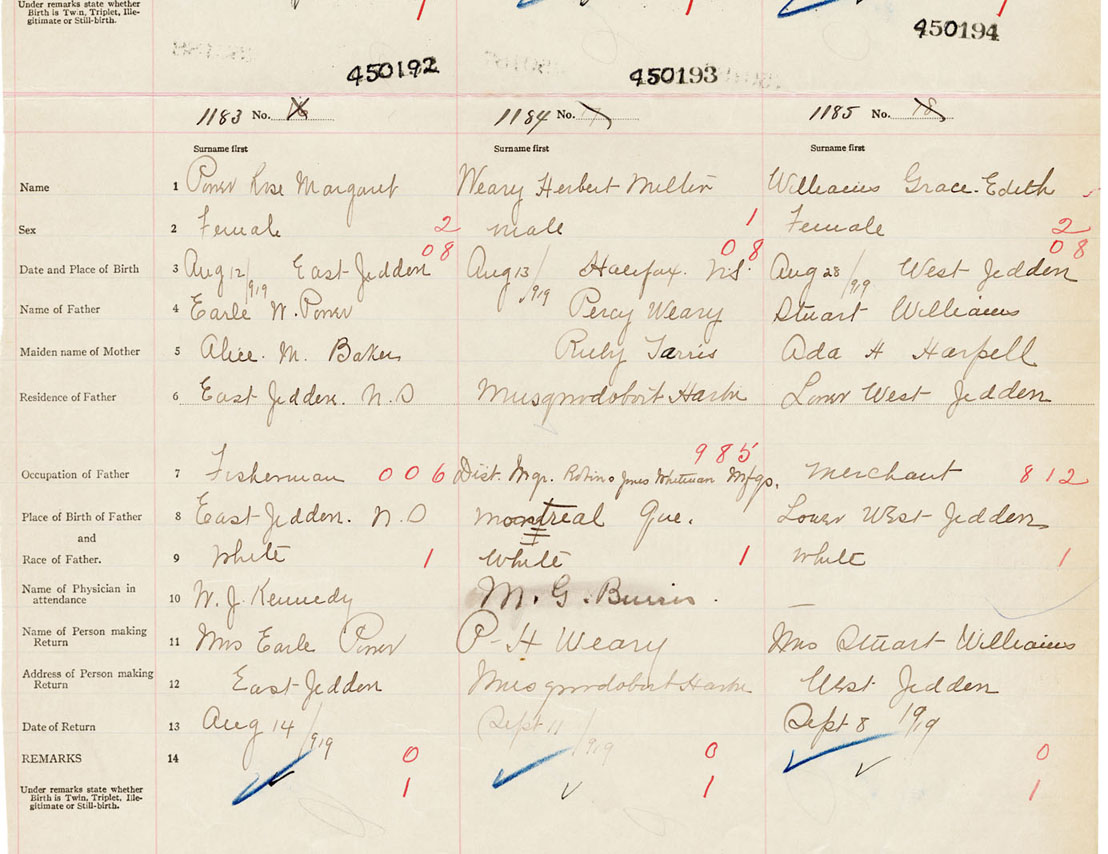 Under remarks state whether
Birth is Twin, Triplet, Ille-
gitimate or Still-birth.
1 1 1
450192 450193 450194
1183 No. 16 1184 No. 17 1185 No. 18
Surname first Surname first Surname first
Name 1 Power Rose Margaret Weary Herbert Williams Grace Edith
Sex 2 Female 2 male 1 Female 2
08 08 08
Date and Place of Birth 3 Aug 12/919 East Jeddon Aug 13/919 Halifax. N.S. Aug 28/919 West Jeddon
Name of Father 4 Earle W. Power Percy Weary Stuart Williams
Maiden name of Mother 5 Alice. M. Baker Ruby Ada H Harpell
Residence of Father 6 East Jeddon. N.S Musquodoboit Harbr Lower West Jeddon
985
Occupation of Father 7 Fisherman 006 Dist. Mgr. Robin Jones Whitman Mfgs. Merchant 812
Place of Birth of Father 8 East Jeddon. N.S Montreal Que. Lower West Jeddon
and
Race of Father. 9 White 1 White 1 White 1
Name of Physician in
attendance 10 W. J. Kennedy M. G. Burris . —
Name of Person making
Return 11 Mrs Earle Power P-H Weary Mrs Stuart Williams
Address of Person making
Return 12 East Jeddon Musquodoboit Harbr West Jeddon
Date of Return 13 Aug 14/919 Sept 11/919 Sept 8 1919
REMARKS 14 0 0 0
Under remarks state whether
Birth is Twin, Triplet, Ille-
gitimate or Still-birth.
1 1 1